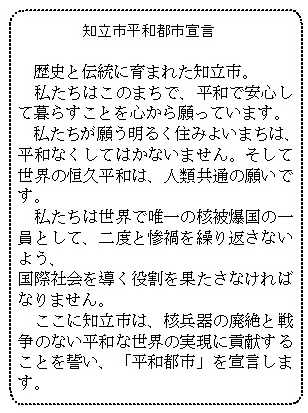 知立市平和都市宣言
歴史と伝統に育まれた知立市。
私たちはこのまちで、平和で安心し
て暮らすことを心から願っています。
私たちが願う明るく住みよいまちは、
平和なくしてはかないません。そして
世界の恒久平和は、人類共通の願いで
す。
私たちは世界で唯一の核被爆国の一
員として、二度と惨禍を繰り返さない
よう、
国際社会を導く役割を果たさなければ
なりません。
ここに知立市は、核兵器の廃絶と戦
争のない平和な世界の実現に貢献する
ことを誓い、「平和都市」を宣言しま
す。